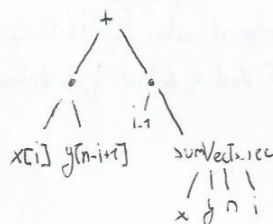 +
• •
x[i] y[n-i+1] i-1 sumVec1>rec
x y n i